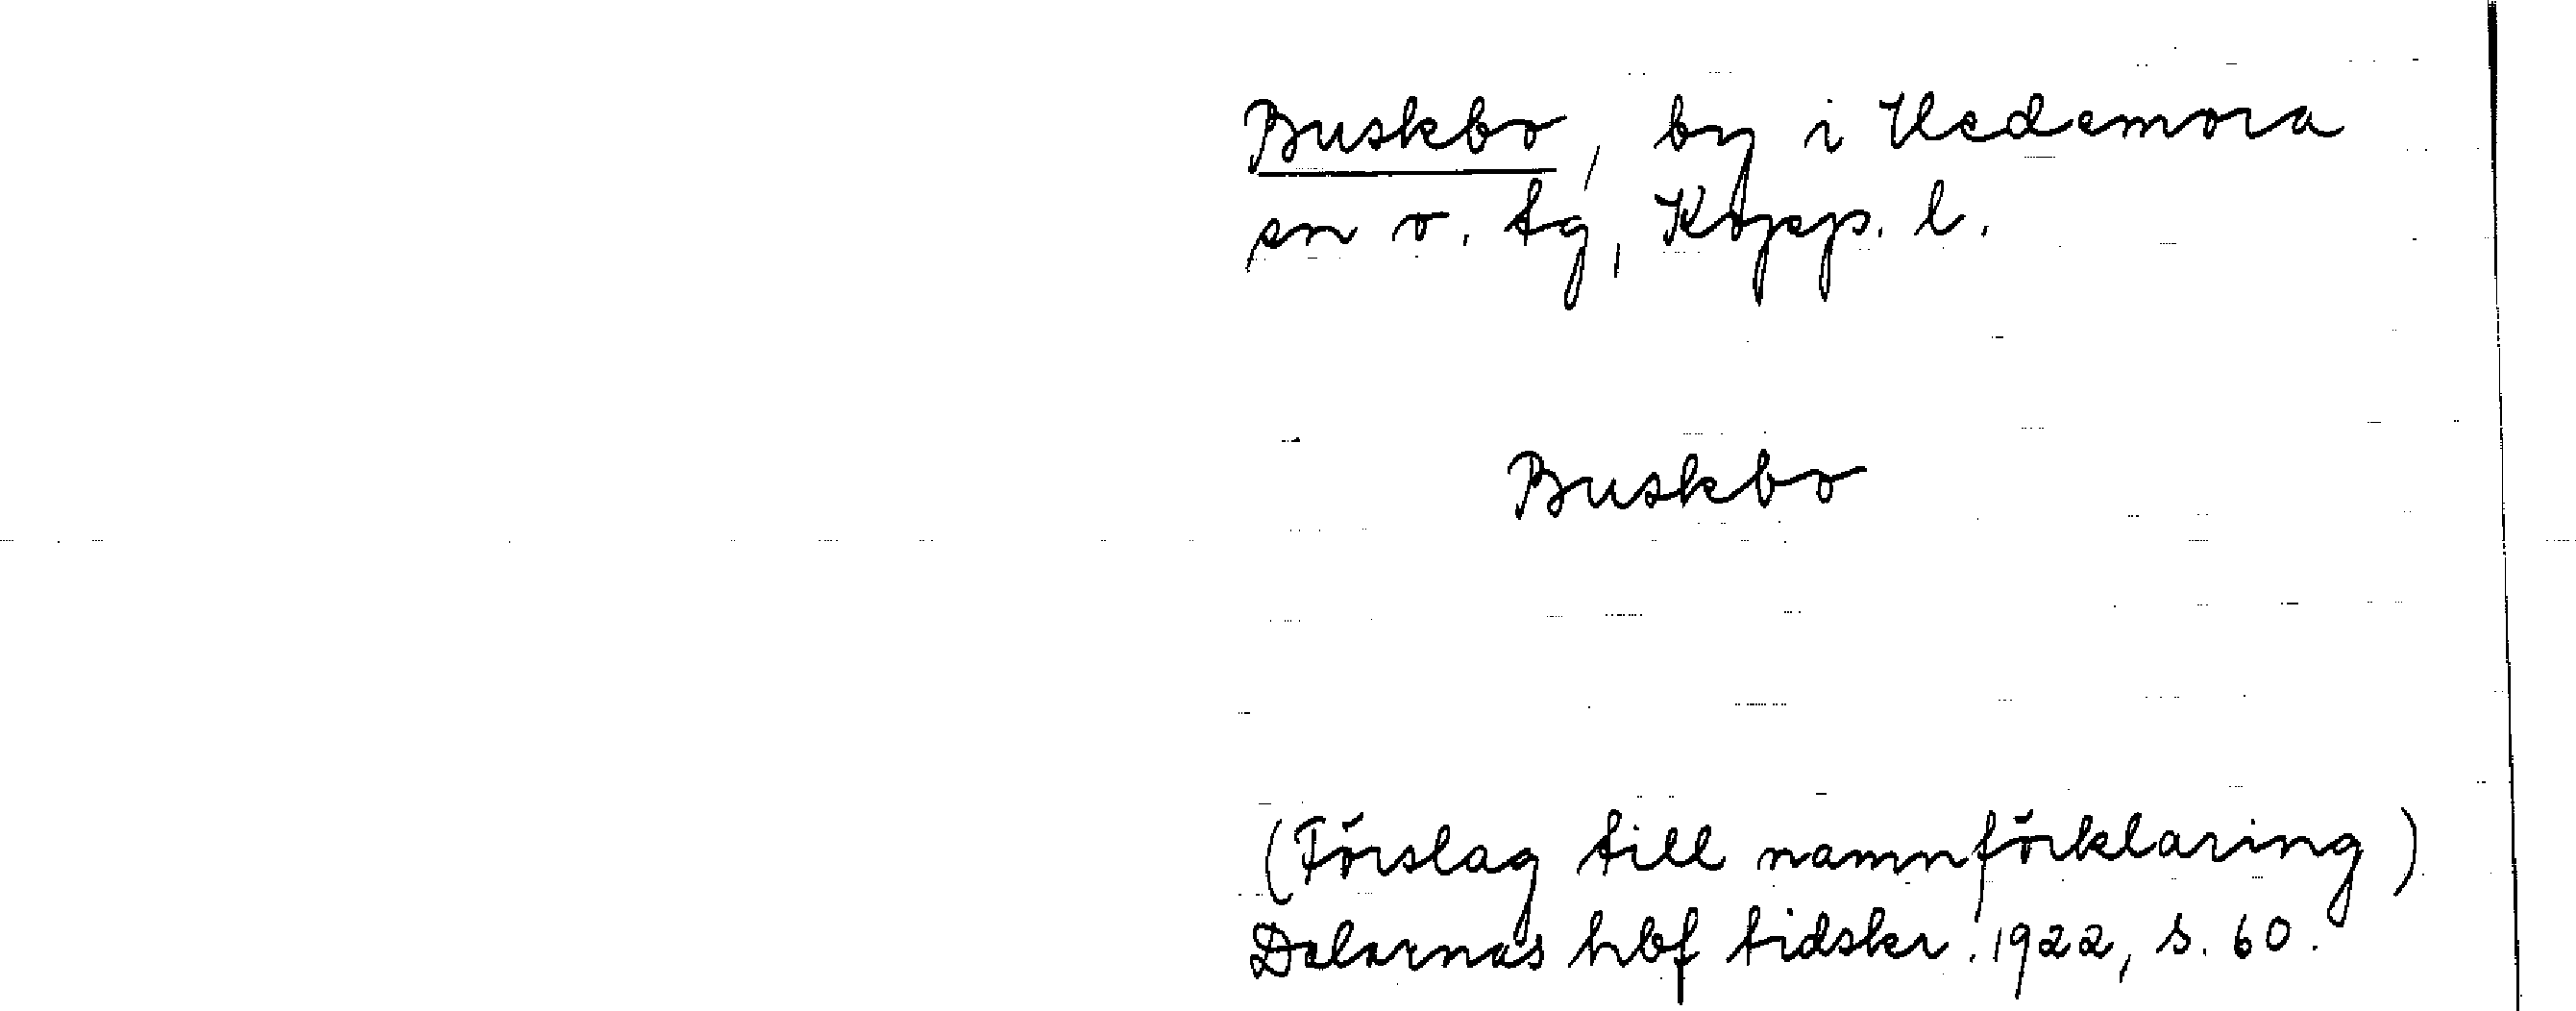 Buskbo, by i Hedemora
sn o. tg, Kopp. l.
Buskbo
(Förslag till namnförklaring)
Dalarnas hbf tidskr. 1922, s. 60.